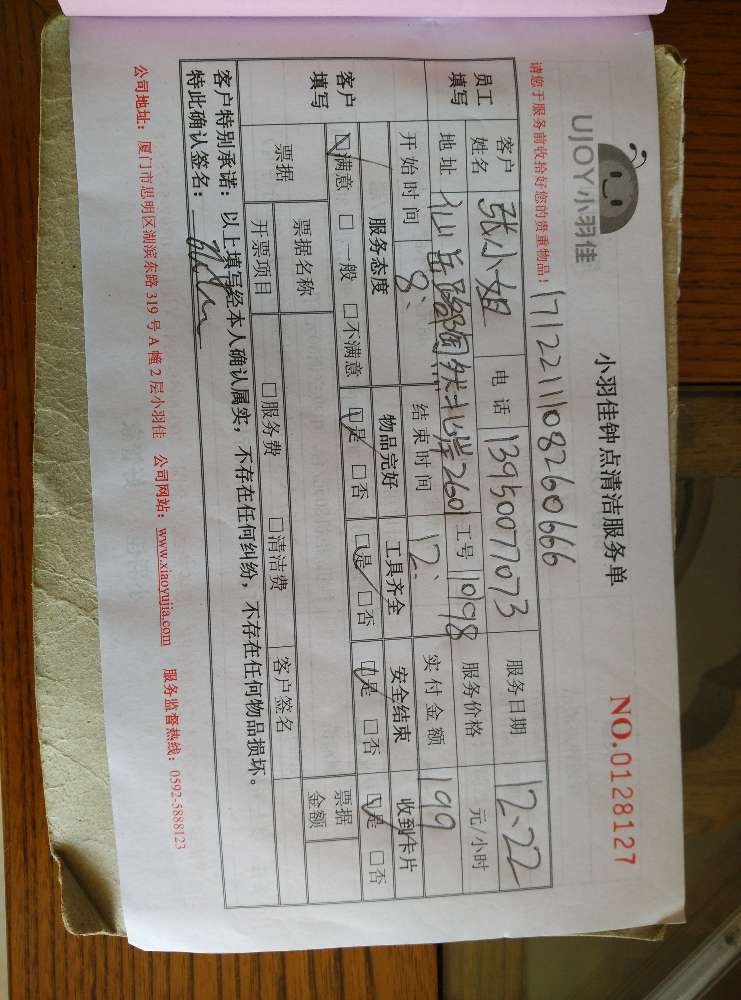 UJOY小羽佳
小羽佳钟点清洁服务单
NO.0128127
请您于服务前收拾好您的贵重物品！
1712211108260666
员工填写 客户姓名 张小姐 电话 13950077073 服务日期 12.22
地址 仙岳路陶然北岸260 工号 1098 服务价格 元/小时
开始时间 8: 结束时间 12: 实付金额 199
客户填写 服务态度 物品完好 工具齐全 安全结束 收到卡片
☑满意 □一般 □不满意 ☑是 □否 ☑是 □否 ☑是 □否 ☑是 □否
票据 票据名称 客户签名 票据金额
开票项目 □服务费 □清洁费
客户特别承诺：以上填写经本人确认属实，不存在任何纠纷，不存在任何物品损坏。
特此确认签名：
公司地址：厦门市思明区湖滨东路319号A幢2层小羽佳 公司网站：www.xiaoyujia.com 服务监督热线：0592-5888123